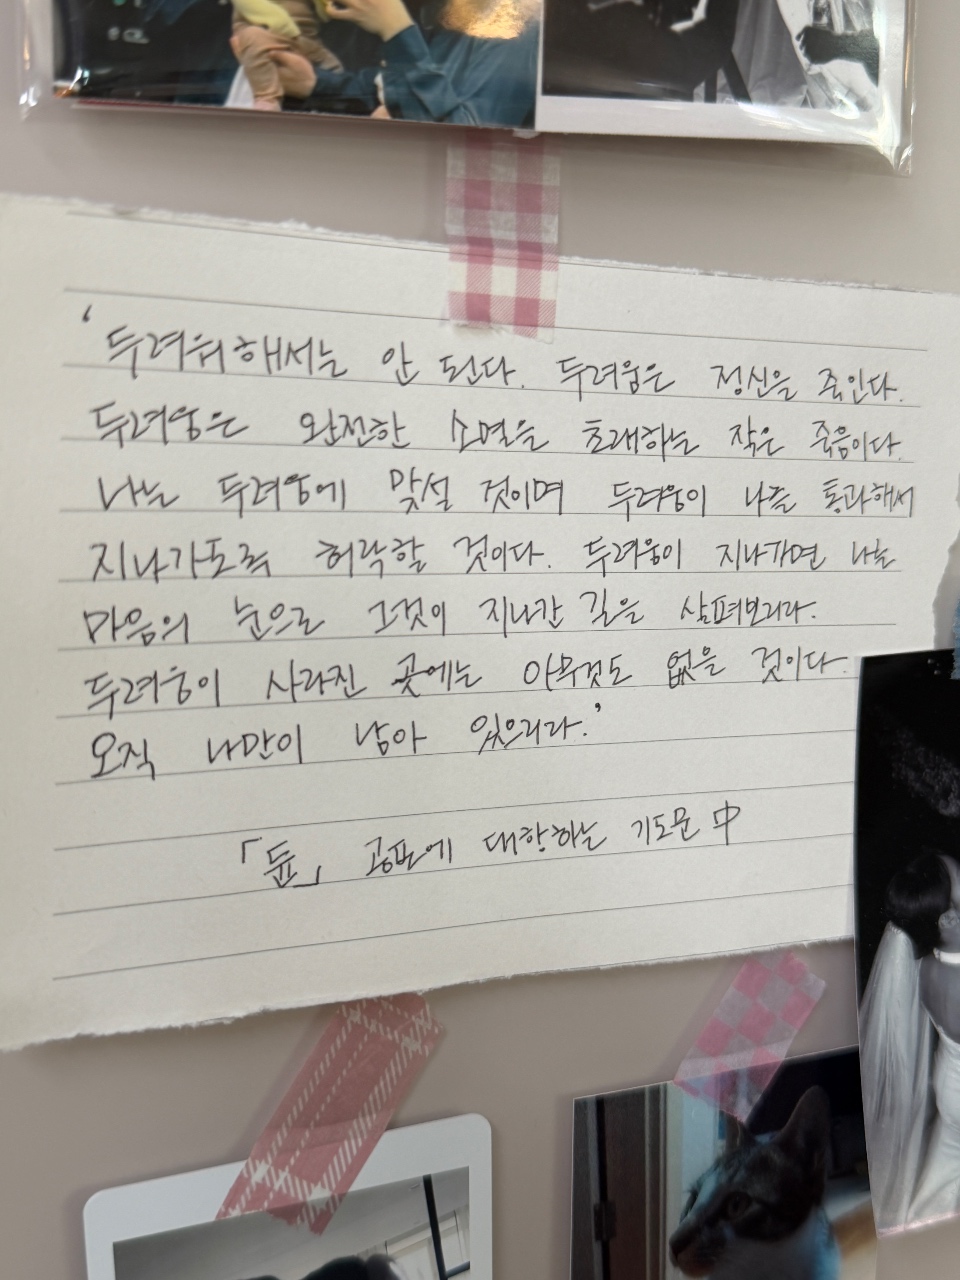 ‘두려워해서는 안 된다. 두려움은 정신을 죽인다.
두려움은 완전한 소멸을 초래하는 작은 죽음이다.
나는 두려움에 맞설 것이며 두려움이 나를 통과해서
지나가도록 허락할 것이다. 두려움이 지나가면 나는
마음의 눈으로 그것이 지나간 길을 살펴보리라.
두려움이 사라진 곳에는 아무것도 없을 것이다.
오직 나만이 남아 있으리라.’
「듄」 공포에 대항하는 기도문 中